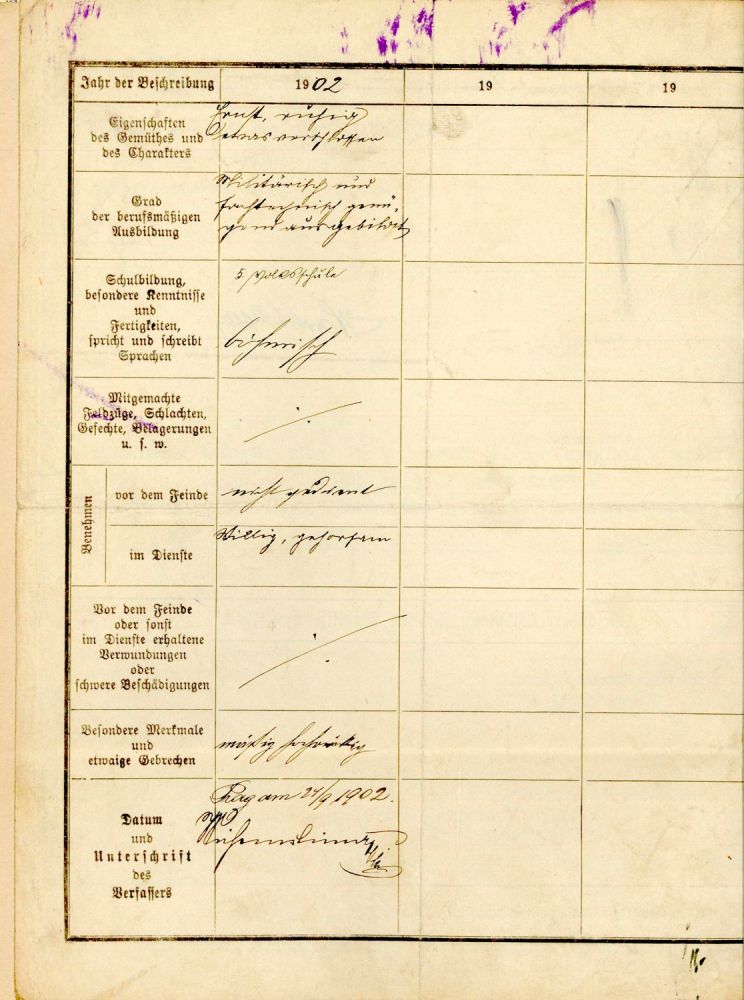 Jahr der Beschreibung
1902
19
19
Eigenschaften
des Gemüthes und
des Charakters
Ernst, ruhig
etwas verschlossen
Grad
der berufsmäßigen
Ausbildung
Militärisch und
fachtechnisch genü-
gend ausgebildet
Schulbildung,
besondere Kenntnisse
und
Fertigkeiten,
spricht und schreibt
Sprachen
5 Volksschule
böhmisch
Mitgemachte
Feldzüge, Schlachten,
Gefechte, Belagerungen
u. s. w.
Benehmen
vor dem Feinde
nicht gedient
im Dienste
Willig, gehorsam
Vor dem Feinde
oder sonst
im Dienste erhaltene
Verwundungen
oder
schwere Beschädigungen
Besondere Merkmale
und
etwaige Gebrechen
mäßig
Datum
und
Unterschrift
des
Verfassers
Prag am 27/9 1902.